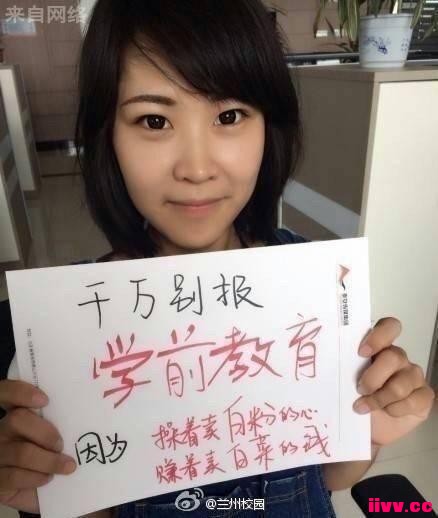 来自网络
千万别报
学前教育
因为
操着卖白粉的心
赚着卖白菜的钱
@兰州校园
iivv.cc